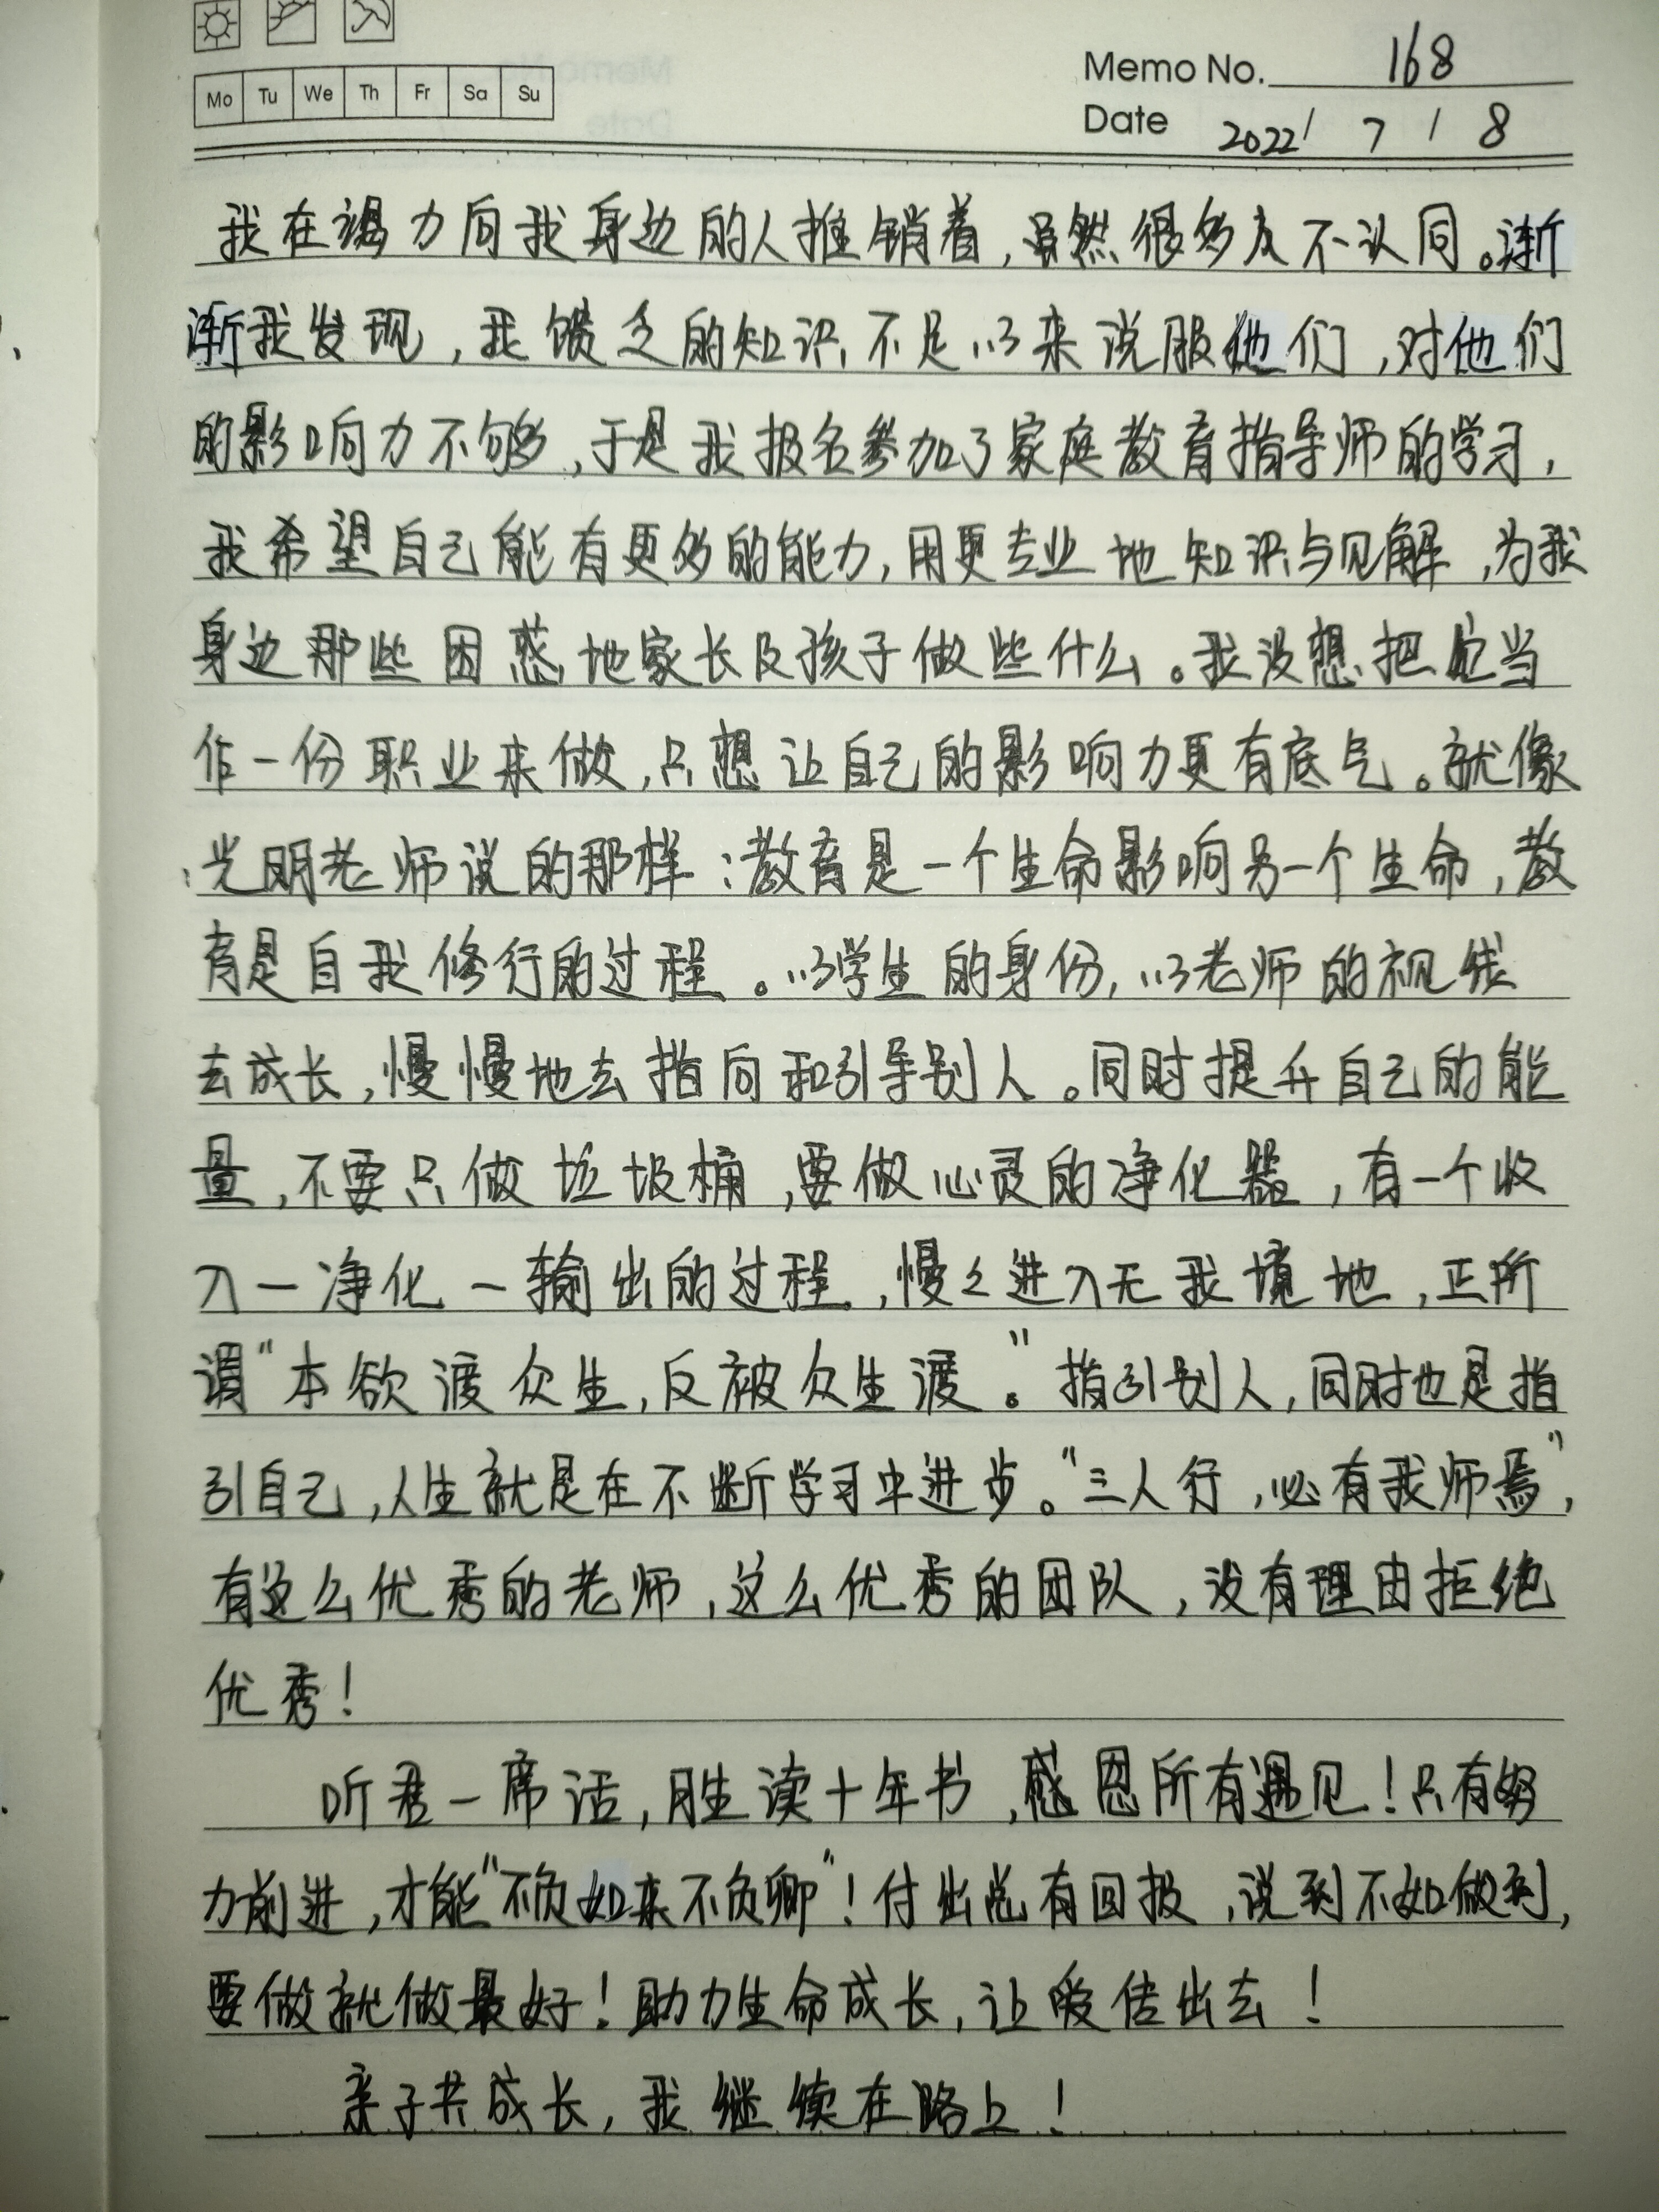 Memo No. 168
Mo Tu We Th Fr Sa Su
Date 2022/ 7 / 8
我在竭力向我身边的人推销着,虽然很多友不认同。渐
渐我发现,我馈乏的知识不足以来说服他们,对他们
的影响力不够,于是我报名参加了家庭教育指导师的学习,
我希望自己能有更多的能力,用更专业地知识与见解,为我
身边那些困惑地家长及孩子做些什么。我没想把它当
作一份职业来做,只想让自己的影响力更有底气。就像
光明老师说的那样:教育是一个生命影响另一个生命,教
育是自我修行的过程。以学生的身份,以老师的视线
去成长,慢慢地去指向和引导别人。同时提升自己的能
量,不要只做垃圾桶,要做心灵的净化器,有一个收
入一净化一输出的过程,慢々进入无我境地,正所
谓"本欲渡众生,反被众生渡。"指引别人,同时也是指
引自己,人生就是在不断学习中进步。"三人行,必有我师焉",
有这么优秀的老师,这么优秀的团队,没有理由拒绝
优秀!
听君一席话,胜读十年书,感恩所有遇见!只有努
力前进,才能"不负如来不负卿"!付出总有回报,说到不如做到,
要做就做最好!助力生命成长,让爱传出去!
亲子共成长,我继续在路上!